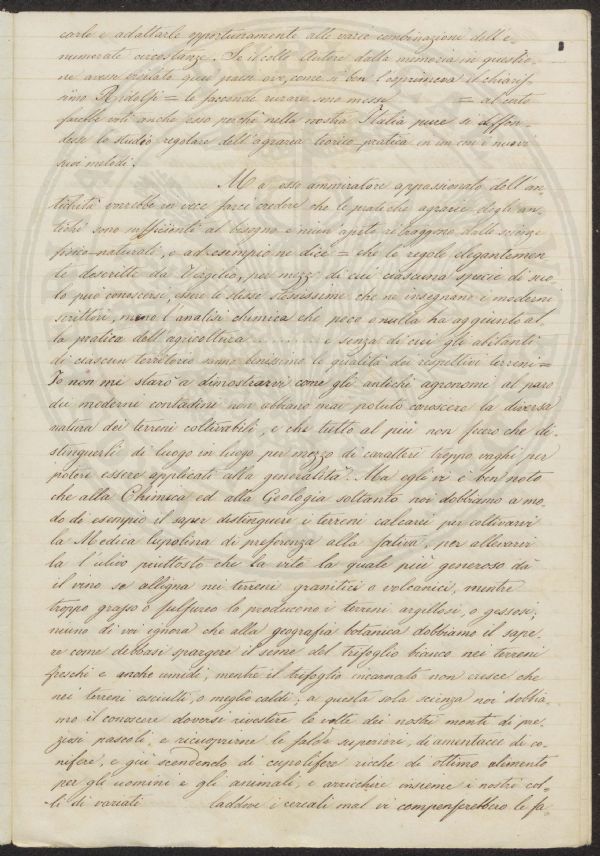 carle e adattarle opportunamente alle varie combinazioni dell'e-
numerate circostanze. Se il colto Autore dalla memoria in questio-
ne avesse visitato quei paesi ove, come si ben l'esprimeva il chiaris-
simo Ridolfi = le faccende rurare sono messe = al certo
farebbe voti anche esso perchè nella nostra Italia pure si diffon-
desse lo studio regolare dell'agraria teorico-pratica in un con i nuovi
suoi metodi.
Ma esso ammiratore appassionato dell'an-
tichità vorrebbe in vece farci credere che le pratiche agrarie degli an-
tichi sono sufficienti al bisogno e niun ajuto ritraggono dalle scienze
fisico-naturali, e ad esempio ne dice = che le regole elegantemen-
te descritte da Virgilio, per mezzo di cui ciascuna specie di suo-
lo può conoscersi, essere le stesse stessissime che ne insegnano i moderni
scrittori, meno l'analisi chimica che poco o nulla ha aggiunto al-
la pratica dell'agricoltura .......... e senza di cui gli abitanti
di ciascun territorio sanno benissimo le qualità dei respettivi terreni =
Io non mi starò a dimostrarvi come gli antichi agronomi al paro
dei moderni contadini non abbiano mai potuto conoscere la diversa
natura dei terreni coltivabili, e che tutto al più non fecero che di-
stinguerli di luogo in luogo per mezzo di caratteri troppo vaghi per
potere essere applicati alla generalità. Ma egli vi è ben noto
che alla Chimica ed alla Geologia soltanto noi dobbiamo a mo-
do di esempio il saper distinguere i terreni calcarei per coltivarvi
la Medica lupolina di preferenza alla sativa, per allevarvi
la l'ulivo piuttosto che la vite la quale più generoso dà
il vino se alligna nei terreni granitici o volcanici, mentre
troppo grasso o sulfureo lo producono i terreni argillosi, o gessosi;
niuno di voi ignora che alla geografia botanica dobbiamo il sape-
re come debbasi spargere il seme del trifoglio bianco nei terreni
freschi e anche umidi, mentre il trifoglio incarnato non cresce che
nei terreni asciutti, o meglio caldi; a questa sola scienza noi dobbia-
mo il conoscere doversi rivestire le volte dei nostri monti di pre-
ziosi pascoli e ricuoprirne le falde superiori, di amentacee di co-
nifere, e giù scendendo di cupolifere ricche di ottimo alimento
per gli uomini e gli animali, e arricchire insieme i nostri col-
li di variati laddove i cereali mal vi compenserebbero le fa-